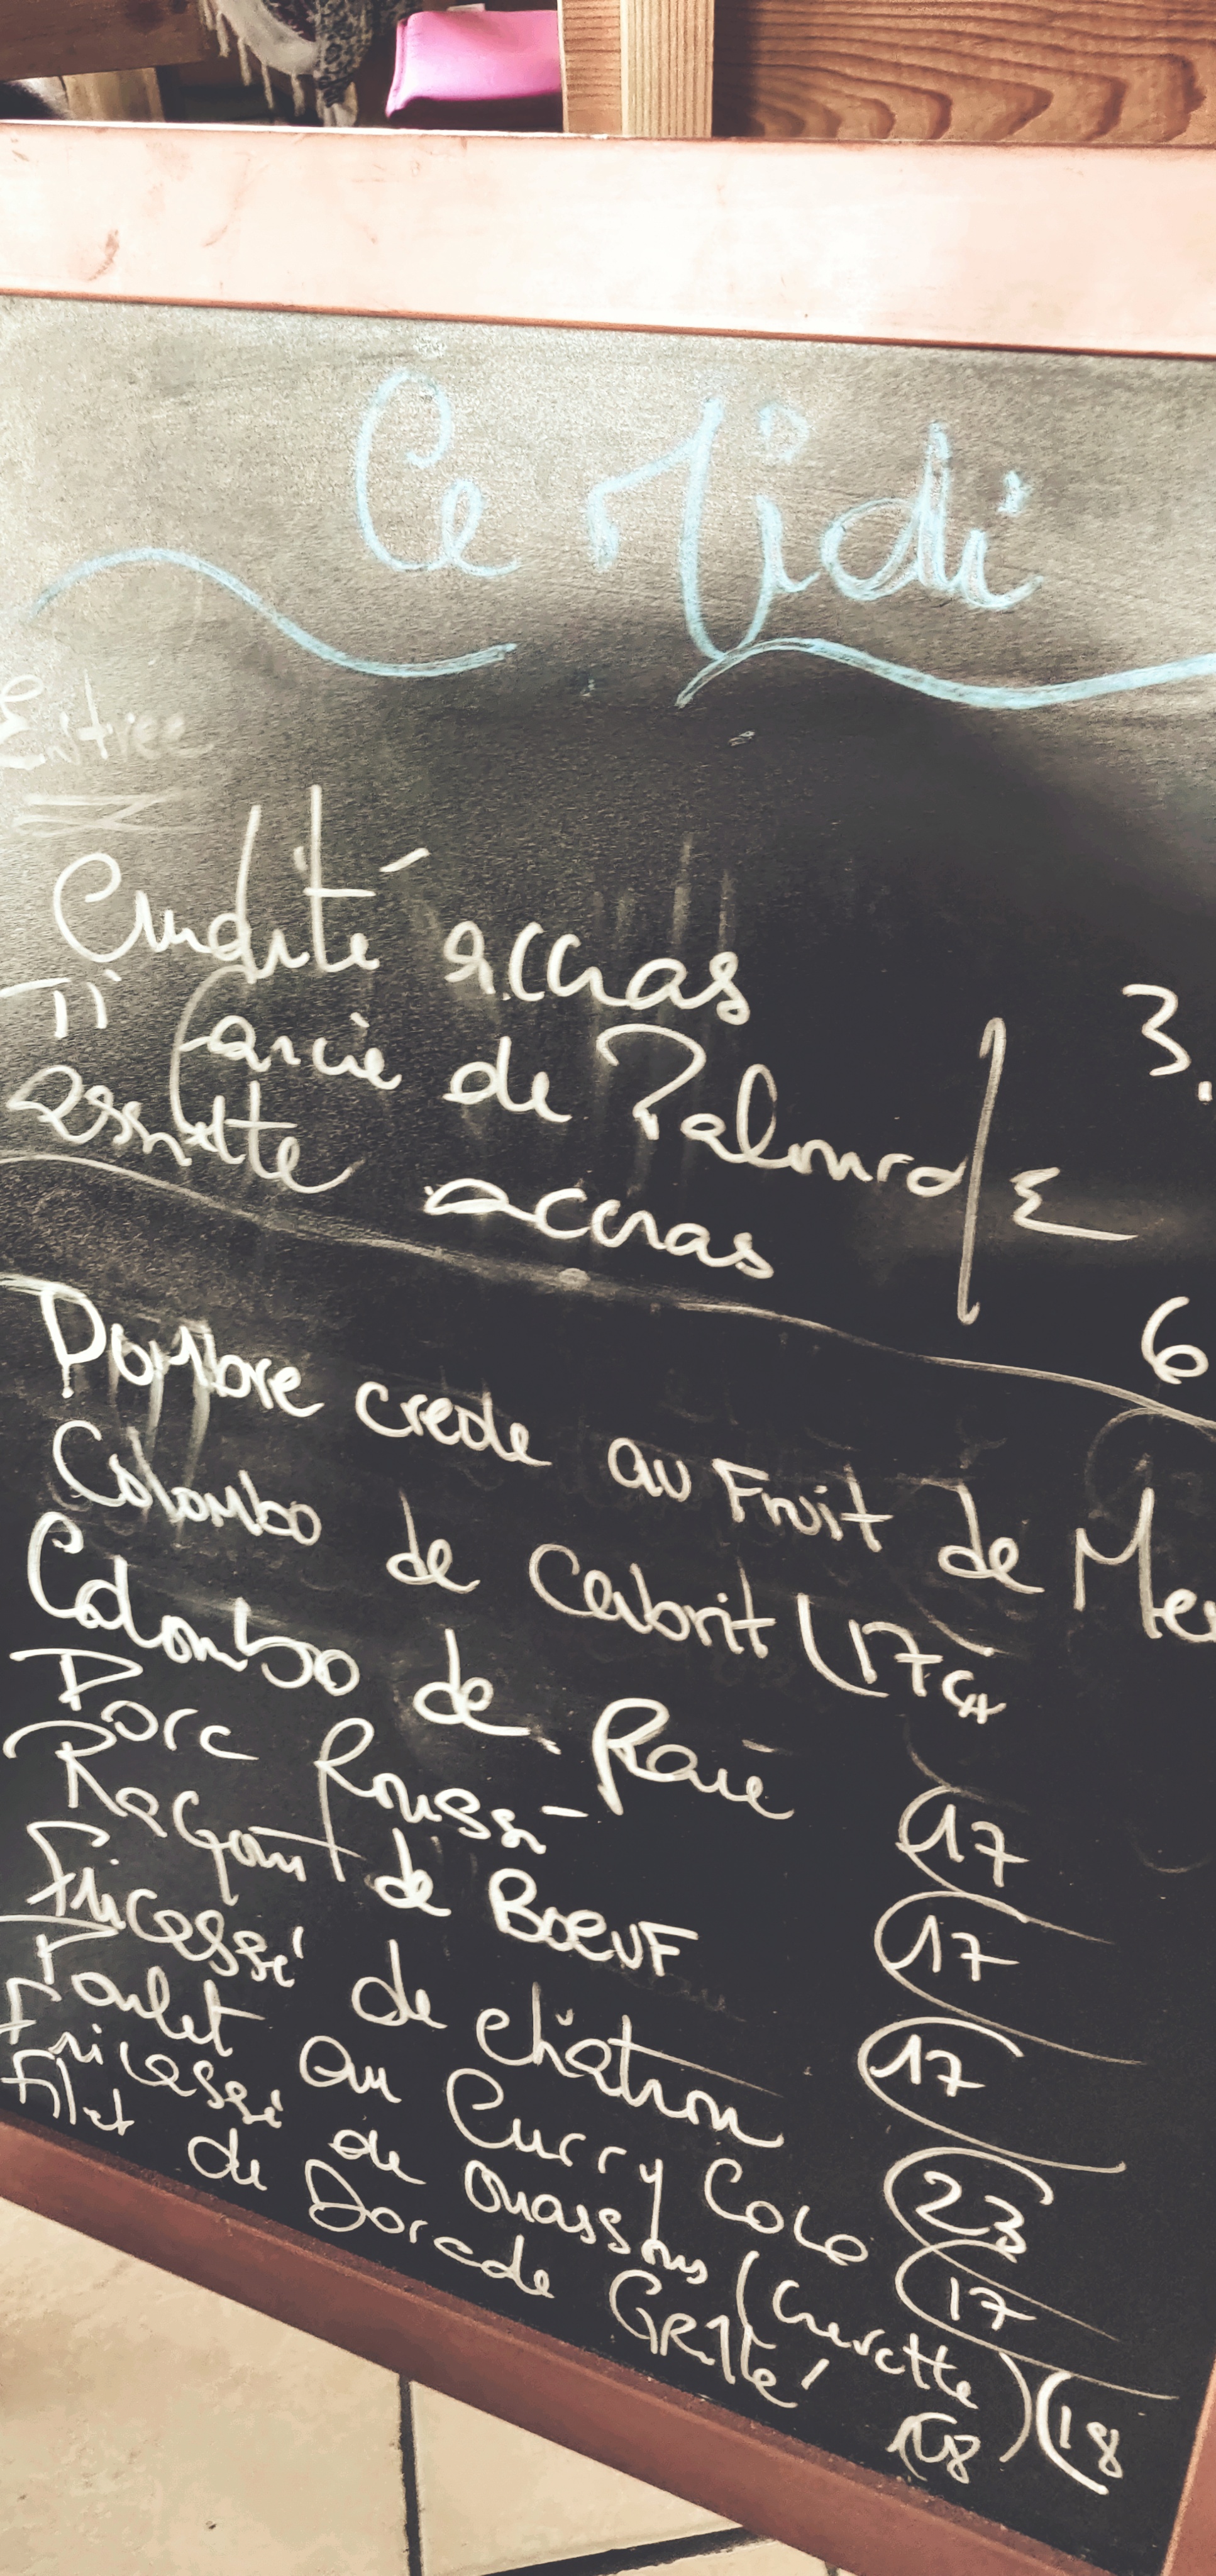 Ce Midi
Entrée
Crudité accras
Ti farcie de Palourd
assiette accras
3.
6
Dombre creole au Fruit de Mer
Colombo de Cabrit (17
Colombo de Raie (17
Porc Roussi (17
Ragout de Boeuf (17
Fricassé de chatrou (23
Poulet au Curry Coco (17
Fricassé de Ouassous (Crevette) (18
Filet de Dorade Grillé (18